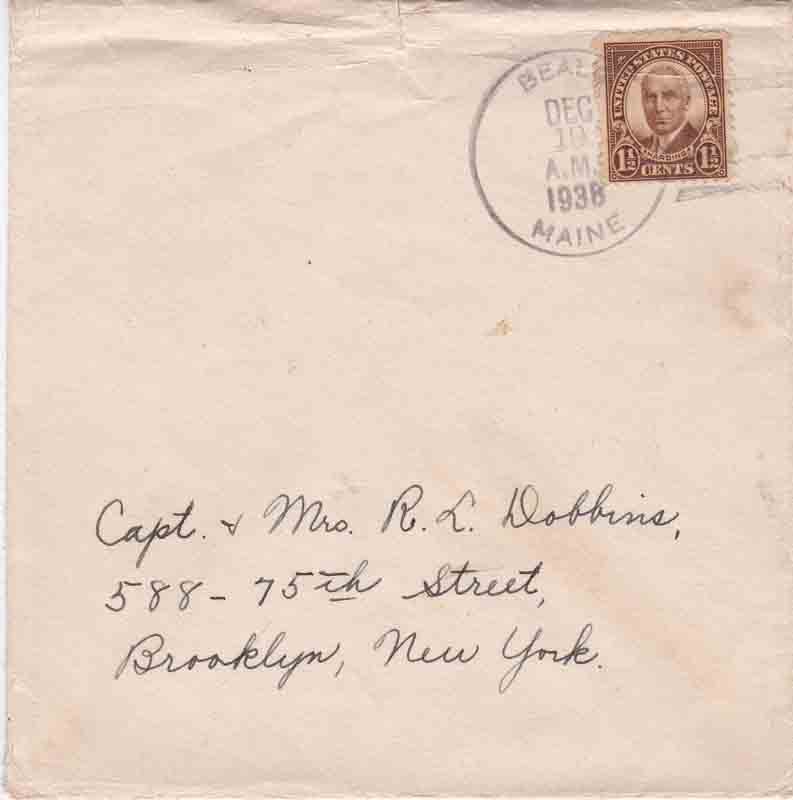 BEALS
DEC
19
A.M.
1938
MAINE
UNITED STATES POSTAGE
HARDING
1½ CENTS 1½
Capt. & Mrs. R. L. Dobbins,
588 - 75th Street,
Brooklyn, New York.